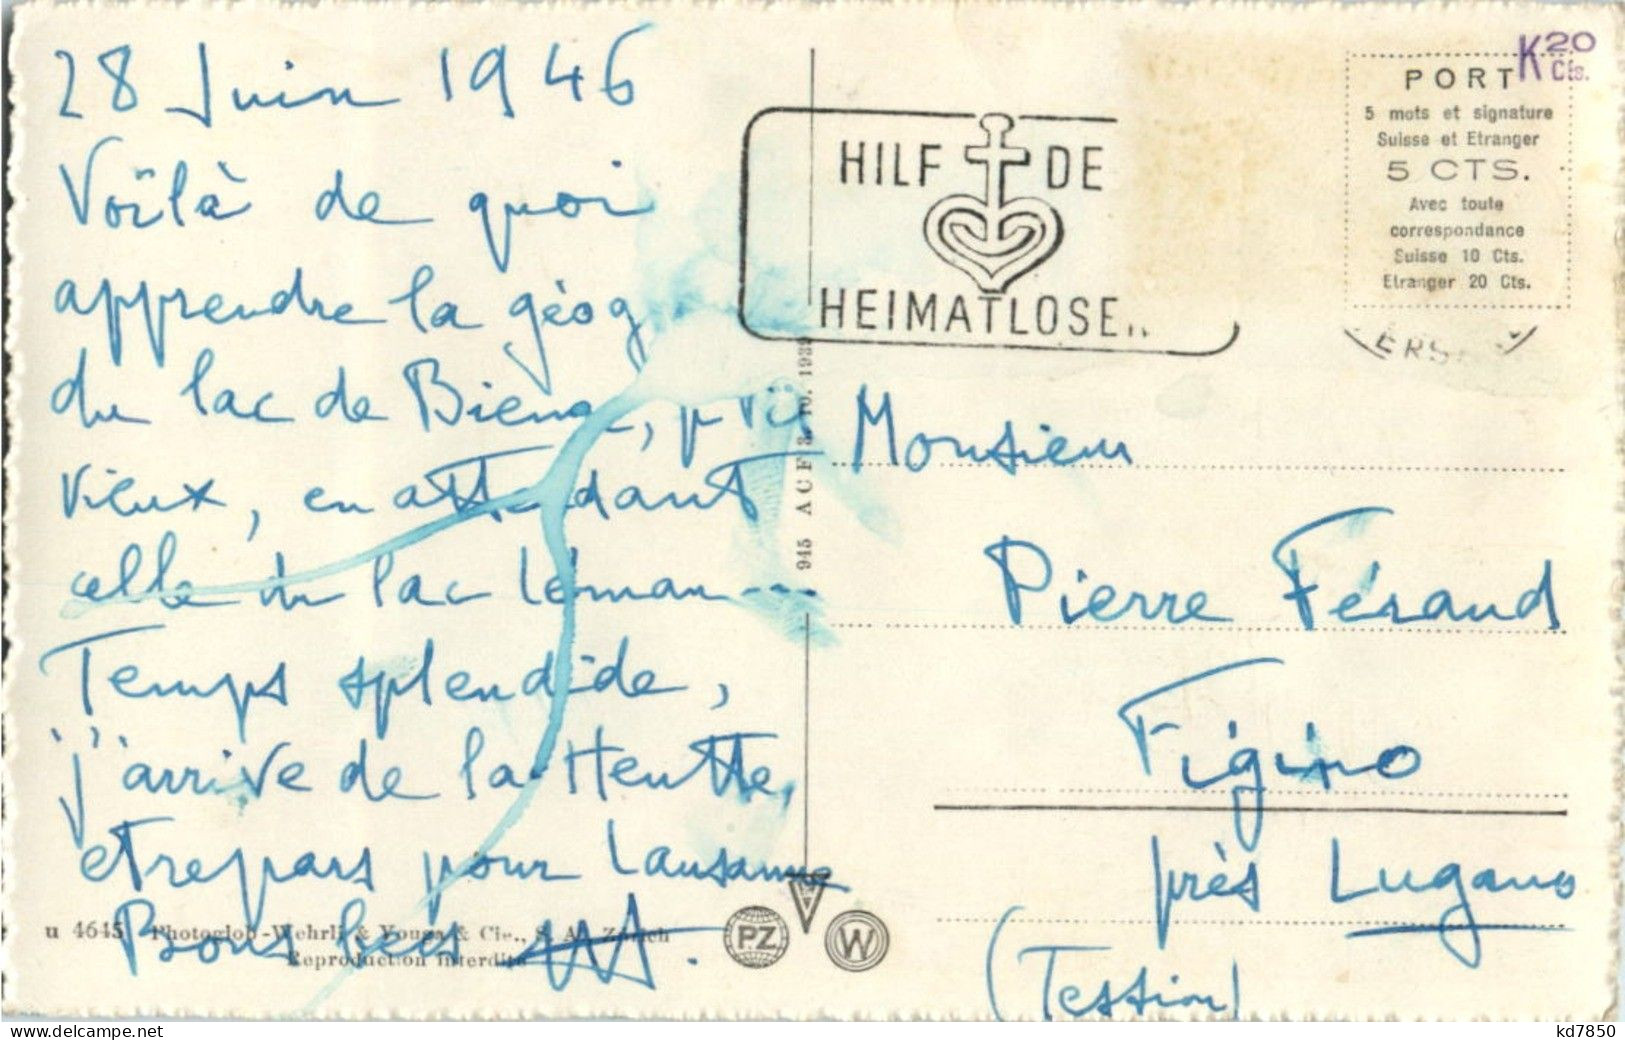 28 Juin 1946
Voïlà de quoi
apprendre la géog
du lac de Bienne,
vieux, en attendant
celle du lac Léman ---
Temps splendide,
j'arrive de la Heutte,
et repars pour Lausanne
Bons bec
HILF DE
HEIMATLOSE
PORT
5 mots et signature
Suisse et Etranger
5 CTS.
Avec toute
correspondance
Suisse 10 Cts.
Etranger 20 Cts.
K 20
Cts.
945 A C F 3. 10. 1939
Monsieur
Pierre Féraud
Figino
près Lugano
(Tessin)
u 4645 Photoglob-Wehrli & Vouga & Cie., S. A. Zürich
Reproduction interdite
PZ
W
kd7850